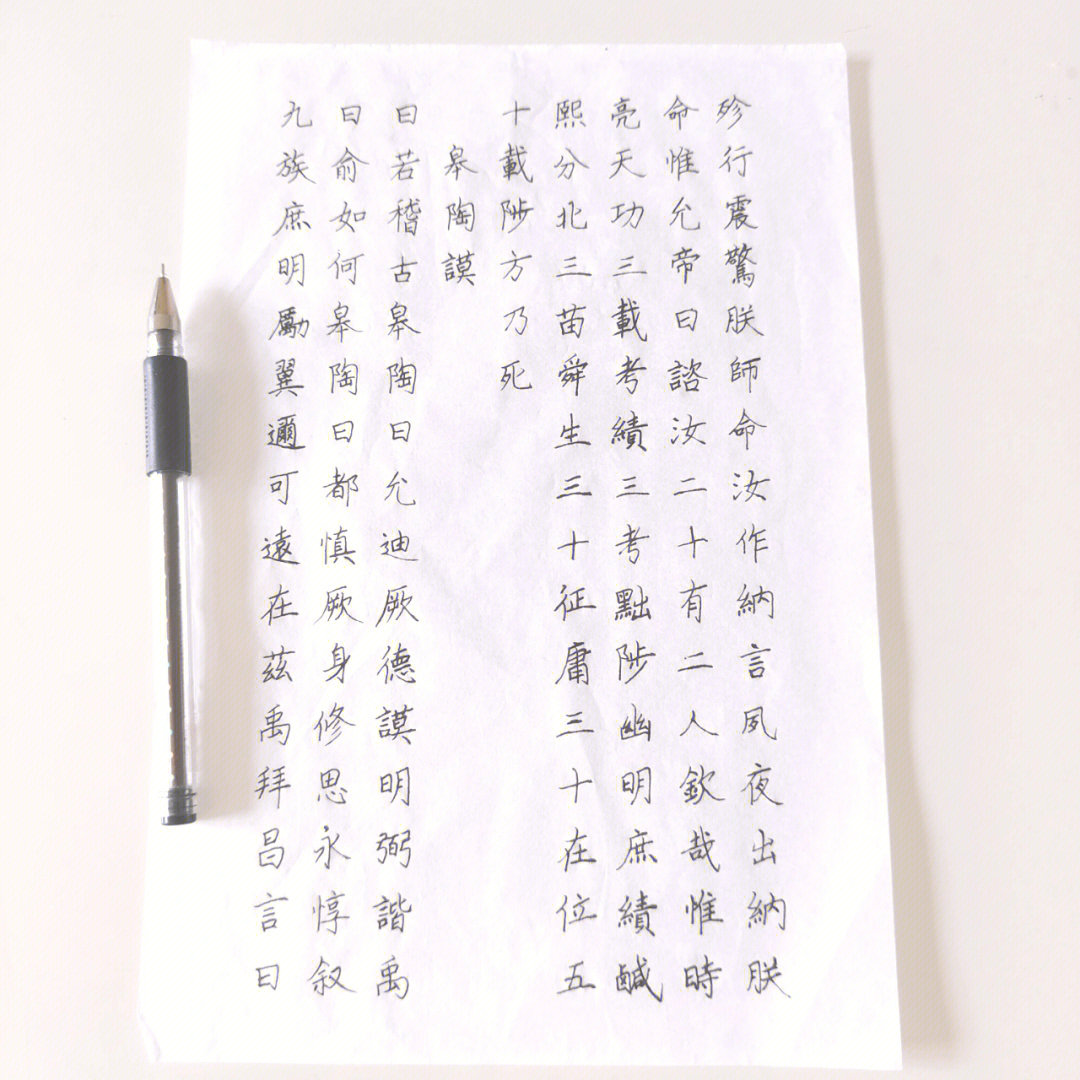 殄行震驚朕師命汝作納言夙夜出納朕
命惟允帝曰諮汝二十有二人欽哉惟時
亮天功三載考績三考黜陟幽明庶績鹹
熙分北三苗舜生三十征庸三十在位五
十載陟方乃死
皋陶謨
曰若稽古皋陶曰允迪厥德謨明弼諧禹
曰俞如何皋陶曰都慎厥身修思永惇叙
九族庶明勵翼邇可遠在茲禹拜昌言曰